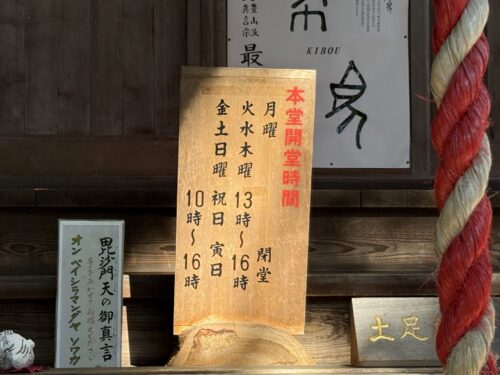 本堂開堂時間
月曜 閉堂
火水木曜 13時〜16時
金土日曜 祝日 寅日
10時〜16時
KIBOU
豊山派
真言宗
最
毘沙門天の御真言
オン ベイシラマンダヤ ソワカ
土足